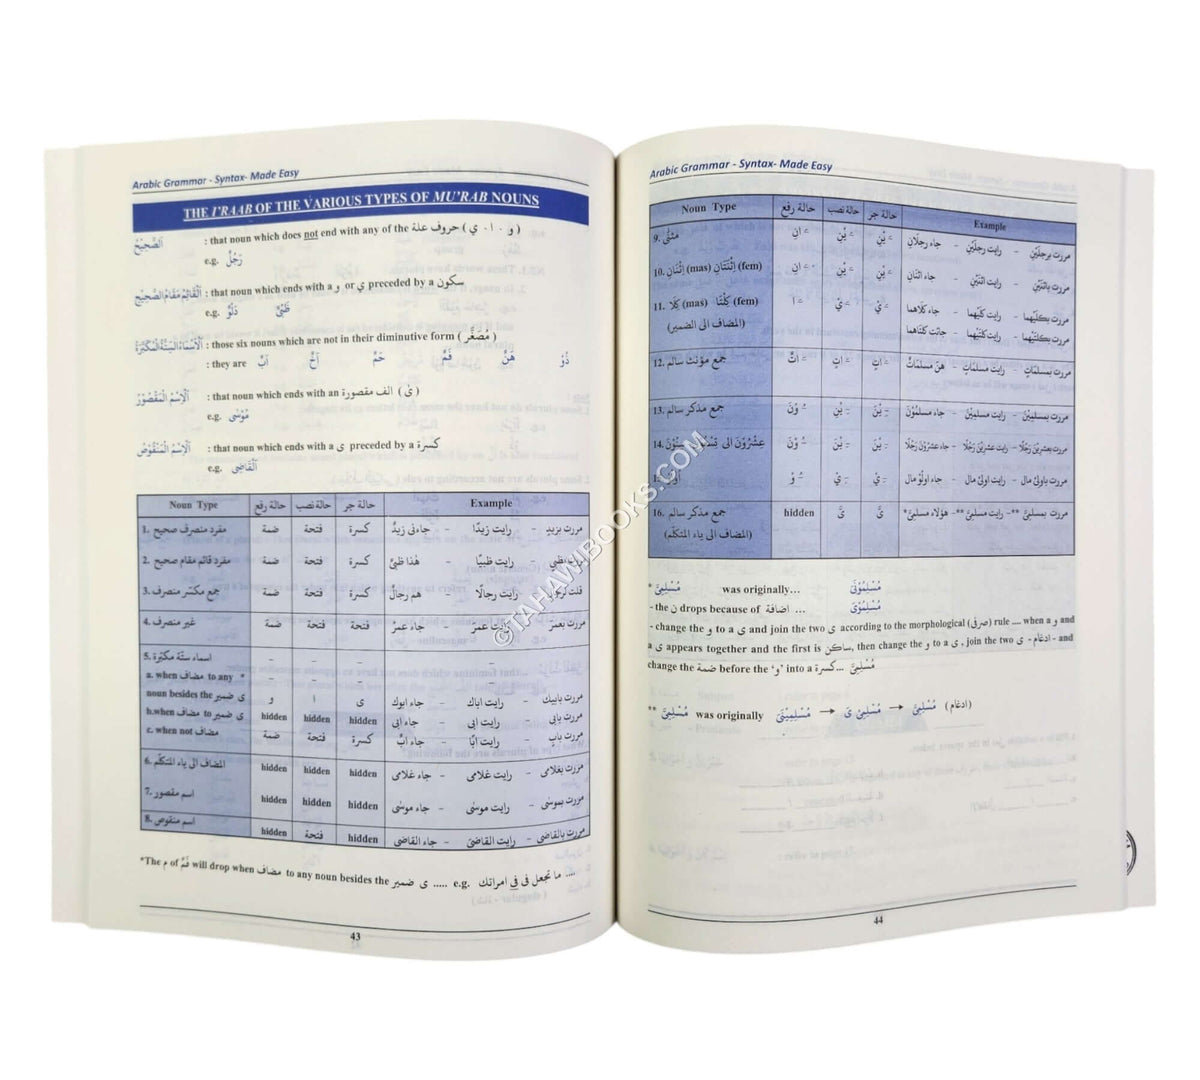 Arabic Grammar - Syntax- Made Easy
THE I'RAAB OF THE VARIOUS TYPES OF MU'RAB NOUNS
اَلصَّحِيْحُ : that noun which does not end with any of the حروف علة ( و ٠ ا ٠ ي )
e.g. رَجُلٌ
اَلْقَائِمُ مَقَامَ الصَّحِيْحِ : that noun which ends with a و or ي preceded by a سكون
e.g. دَلْوٌ ظَبْيٌ
اَلْأَسْمَاءُ السِّتَّةُ الْمُكَبَّرَةُ : those six nouns which are not in their diminutive form ( مُصَغَّر )
: they are اَبٌ اَخٌ حَمٌ فَمٌ هَنٌ ذُوْ
اَلْاِسْمُ الْمَقْصُوْرُ : that noun which ends with an الف مقصورة ( ىٰ )
e.g. مُوْسٰى
اَلْاِسْمُ الْمَنْقُوْصُ : that noun which ends with a ى preceded by a كسرة
e.g. اَلْقَاضِى
Noun Type حالة رفع حالة نصب حالة جر Example
1. مفرد منصرف صحيح ضمة فتحة كسرة جاءنى زيدٌ - رايت زيدًا - مررت بزيدٍ
2. مفرد قائم مقام صحيح ضمة فتحة كسرة هذا ظبىٌ - رايت ظبيًا -
3. جمع مكسر منصرف ضمة فتحة كسرة هم رجالٌ - رايت رجالًا - قلت لرجالٍ
4. غير منصرف ضمة فتحة فتحة جاء عمرُ - رايت عمرَ - مررت بعمرَ
5. اسماء ستة مكبّرة – – – –
a. when مضاف to any * – – – –
noun besides the ضمير ى و ا ى جاء ابوك - رايت اباك - مررت بابيك
b. when مضاف to ضمير ى hidden hidden hidden جاء ابى - رايت ابى - مررت بابى
c. when not مضاف ضمة فتحة كسرة جاء ابٌ - رايت ابًا - مررت بابٍ
6. المضاف الى ياء المتكلّم hidden hidden hidden جاء غلامى - رايت غلامى - مررت بغلامى
7. اسم مقصور hidden hidden hidden جاء موسٰى - رايت موسٰى - مررت بموسٰى
8. اسم منقوص hidden فتحة hidden جاء القاضى - رايت القاضىَ - مررت بالقاضى
*The م of فَمٌ will drop when مضاف to any noun besides the ضمير ى ..... e.g. ما تجعل فى فى امراتك ....
43
Arabic Grammar - Syntax- Made Easy
Noun Type حالة رفع حالة نصب حالة جر Example
9. مثنّٰى انِ يْنِ يْنِ جاء رجلانِ - رايت رجلَيْنِ - مررت برجلَيْنِ
10. اِثْنَانِ (mas) اِثْنَتَانِ (fem) انِ يْنِ يْنِ جاء اثنانِ - رايت اثنَيْنِ - مررت باثنَيْنِ
11. كِلَا (mas) كِلْتَا (fem) ا يْ يْ جاء كلاهما - رايت كلَيْهما - مررت بكلَيْهما
(المضاف الى الضمير) جائت كلتاهما - رايت كلتَيْهما - مررت بكلتَيْهما
12. جمع مؤنث سالم اتٌ اتٍ اتٍ هنّ مسلماتٌ - رايت مسلماتٍ - مررت بمسلماتٍ
13. جمع مذكر سالم وْنَ يْنَ يْنَ جاء مسلموْنَ - رايت مسلميْنَ - مررت بمسلميْنَ
14. عِشْرُوْنَ الى وْنَ يْنَ يْنَ جاء عشروْنَ رجلًا - رايت عشريْنَ رجلًا - مررت بعشريْنَ رجلًا
وْ يْ يْ جاء اولُوْ مال - رايت اولىْ مال - مررت باولىْ مال
16. جمع مذكر سالم hidden ىَّ ىَّ هؤلاء مسلمىَّ* - رايت مسلمىَّ** - مررت بمسلمىَّ **
(المضاف الى ياء المتكلّم)
* مُسْلِمِىَّ was originally... مُسْلِمُوْنَىَ
- the ن drops because of اضافة ... مُسْلِمُوْىَ
- change the و to a ى and join the two ى according to the morphological (صرفى) rule .... when a و and
a ى appears together and the first is ساكن, then change the و to a ى , join the two ى - ادغام - and
change the ضمة before the 'و' into a كسرة ... مُسْلِمِىَّ
** مُسْلِمِىَّ was originally مُسْلِمِيْنَىَ → مُسْلِمِىْ ىَ → مُسْلِمِىَّ (ادغام)
44
©TAHAWIBOOKS.COM